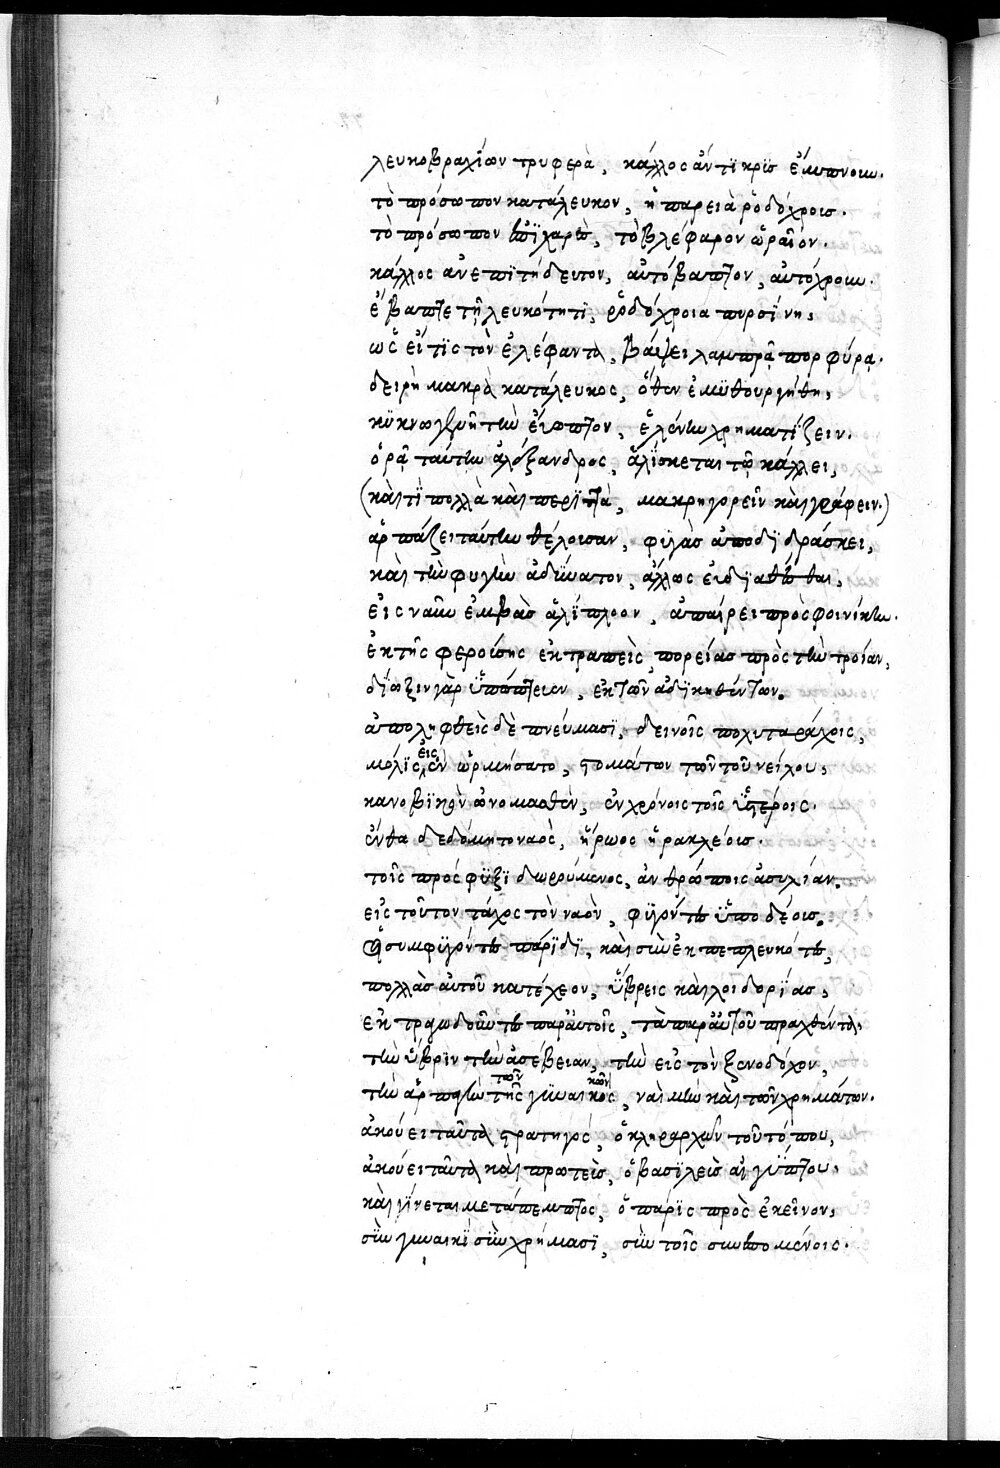 λευκοβραχίων τρυφερὰ, κάλλος ἄντϊκρϋς ἔμπνουν.
τὸ πρόσωπον κατάλευκον, ἡ παρειὰ ῥοδόχρους.
τὸ πρόσωπον ἐπΐχαρϊ, τὸ βλέφαρον ὡραῖον.
κάλλος ἀνεπϊτήδευτον, αὐτόβαπτον, αὐτόχρουν.
ἔβαπτε τὴν λευκότητϊ, ῥοδόχροια πυρσΐνη,
ὡς εἴ τϊς τὸν ἐλέφαντα, βάψει λαμπρᾷ πορφύρᾳ.
δειρὴ μακρὰ κατάλευκος, ὅθεν ἐμϋθουργήθη,
κϋκνογενῆ τὴν εὔοπτον, ἑλένην χρηματΐζειν.
ὁρᾷ ταύτην ἀλέξανδρος, ἁλΐσκεται τῷ κάλλει,
(καὶ τΐ πολλὰ καὶ περϊττὰ, μακρηγορεῖν καὶ γράφειν.)
ἁρπάζει ταύτην θέλουσαν, φϋγὰς ἀποδϊδράσκει,
καὶ τὴν φυγὴν ἀδύνατον, ἄλλως εἰ δϊαθῶνται,
εἰς ναῦν ἐμβὰς ἁλΐπλοον, ἀπαίρει πρὸς φοινίκην.
ἐκ τῆς φερούσης ἐκτραπεὶς, πορείας πρὸς τὴν τροίαν,
δίωξιν γὰρ ὑπώπτευεν, ἐκ τῶν ἀδϊκηθέντων.
ἀποληφθεὶς δὲ πνεύμασϊ, δεινοῖς πολυταράχοις,
μόλϊς εἰς ἓν ὡρμήσατο, στομάτων τῶν τοῦ νείλου,
κανοβϊκὸν ὠνομασθὲν, ἐν χρόνοις τοῖς ὑστέροις.
ἔνθα δεδόμητο ναὸς, ἥρωος ἡρακλέους.
τοῖς πρόσφϋξϊ δωρούμενος, ἀνθρώποις ἀσυχίαν.
εἰς τοῦτον τάχος τὸν ναὸν, φϋγόντες ὑπὸ δέους.
οἱ συμφϋγόντες πάρϊδϊ, καὶ συνεκπεπλευκότες,
πολλὰς αὐτοῦ κατέχεον, ὕβρεις καὶ λοιδορΐας,
ἐκτραγῳδοῦντες παρ' αὐτοῖς, τὰ παρ' αὐτοῦ πραχθέντα,
τὴν ὕβριν τὴν ἀσέβειαν, τὴν εἰς τὸν ξενοδόχον,
τὴν ἁρπαγὴν τῆς τῶν γυναικὸς κῶν, ναὶ μὴν καὶ τῶν χρημάτων.
ἀκούει ταῦτα στρατηγὸς, ὁ κληραρχῶν τοῦ τόπου,
ἀκούει ταῦτα καὶ πρωτεὺς, ὁ βασιλεὺς αἰγύπτου,
καὶ γΐνεται μετάπεμπτος, ὁ πάρϊς πρὸς ἐκεῖνον,
σὺν γυναικΐ σὺν χρήμασϊ, σὺν τοῖς συνεπομένοις.